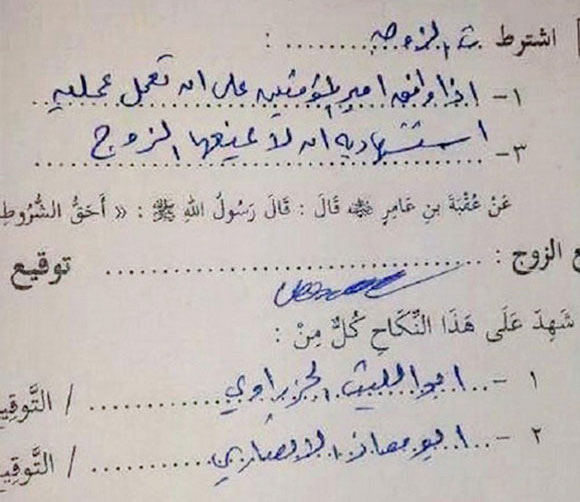 اشترطت الزوجة :
١- اذا وافق امير المؤمنين على ان تعمل عملية
٣- استشهادية ان لا يمنعها الزوج
عَنْ عُقْبَةَ بنِ عَامِرٍ ﷺ قَالَ : قَالَ رَسُولُ اللهِ ﷺ : « أَحَقُّ الشُّرُوطِ
ع الزوج : توقيع
شَهِدَ عَلَى هَذَا النِّكَاحِ كُلٌّ مِنْ :
١ - ابو الليث الجزراوي / التَّوقِيـ
٢ - ابو معاذ الانصاري / التَّوقِيـ